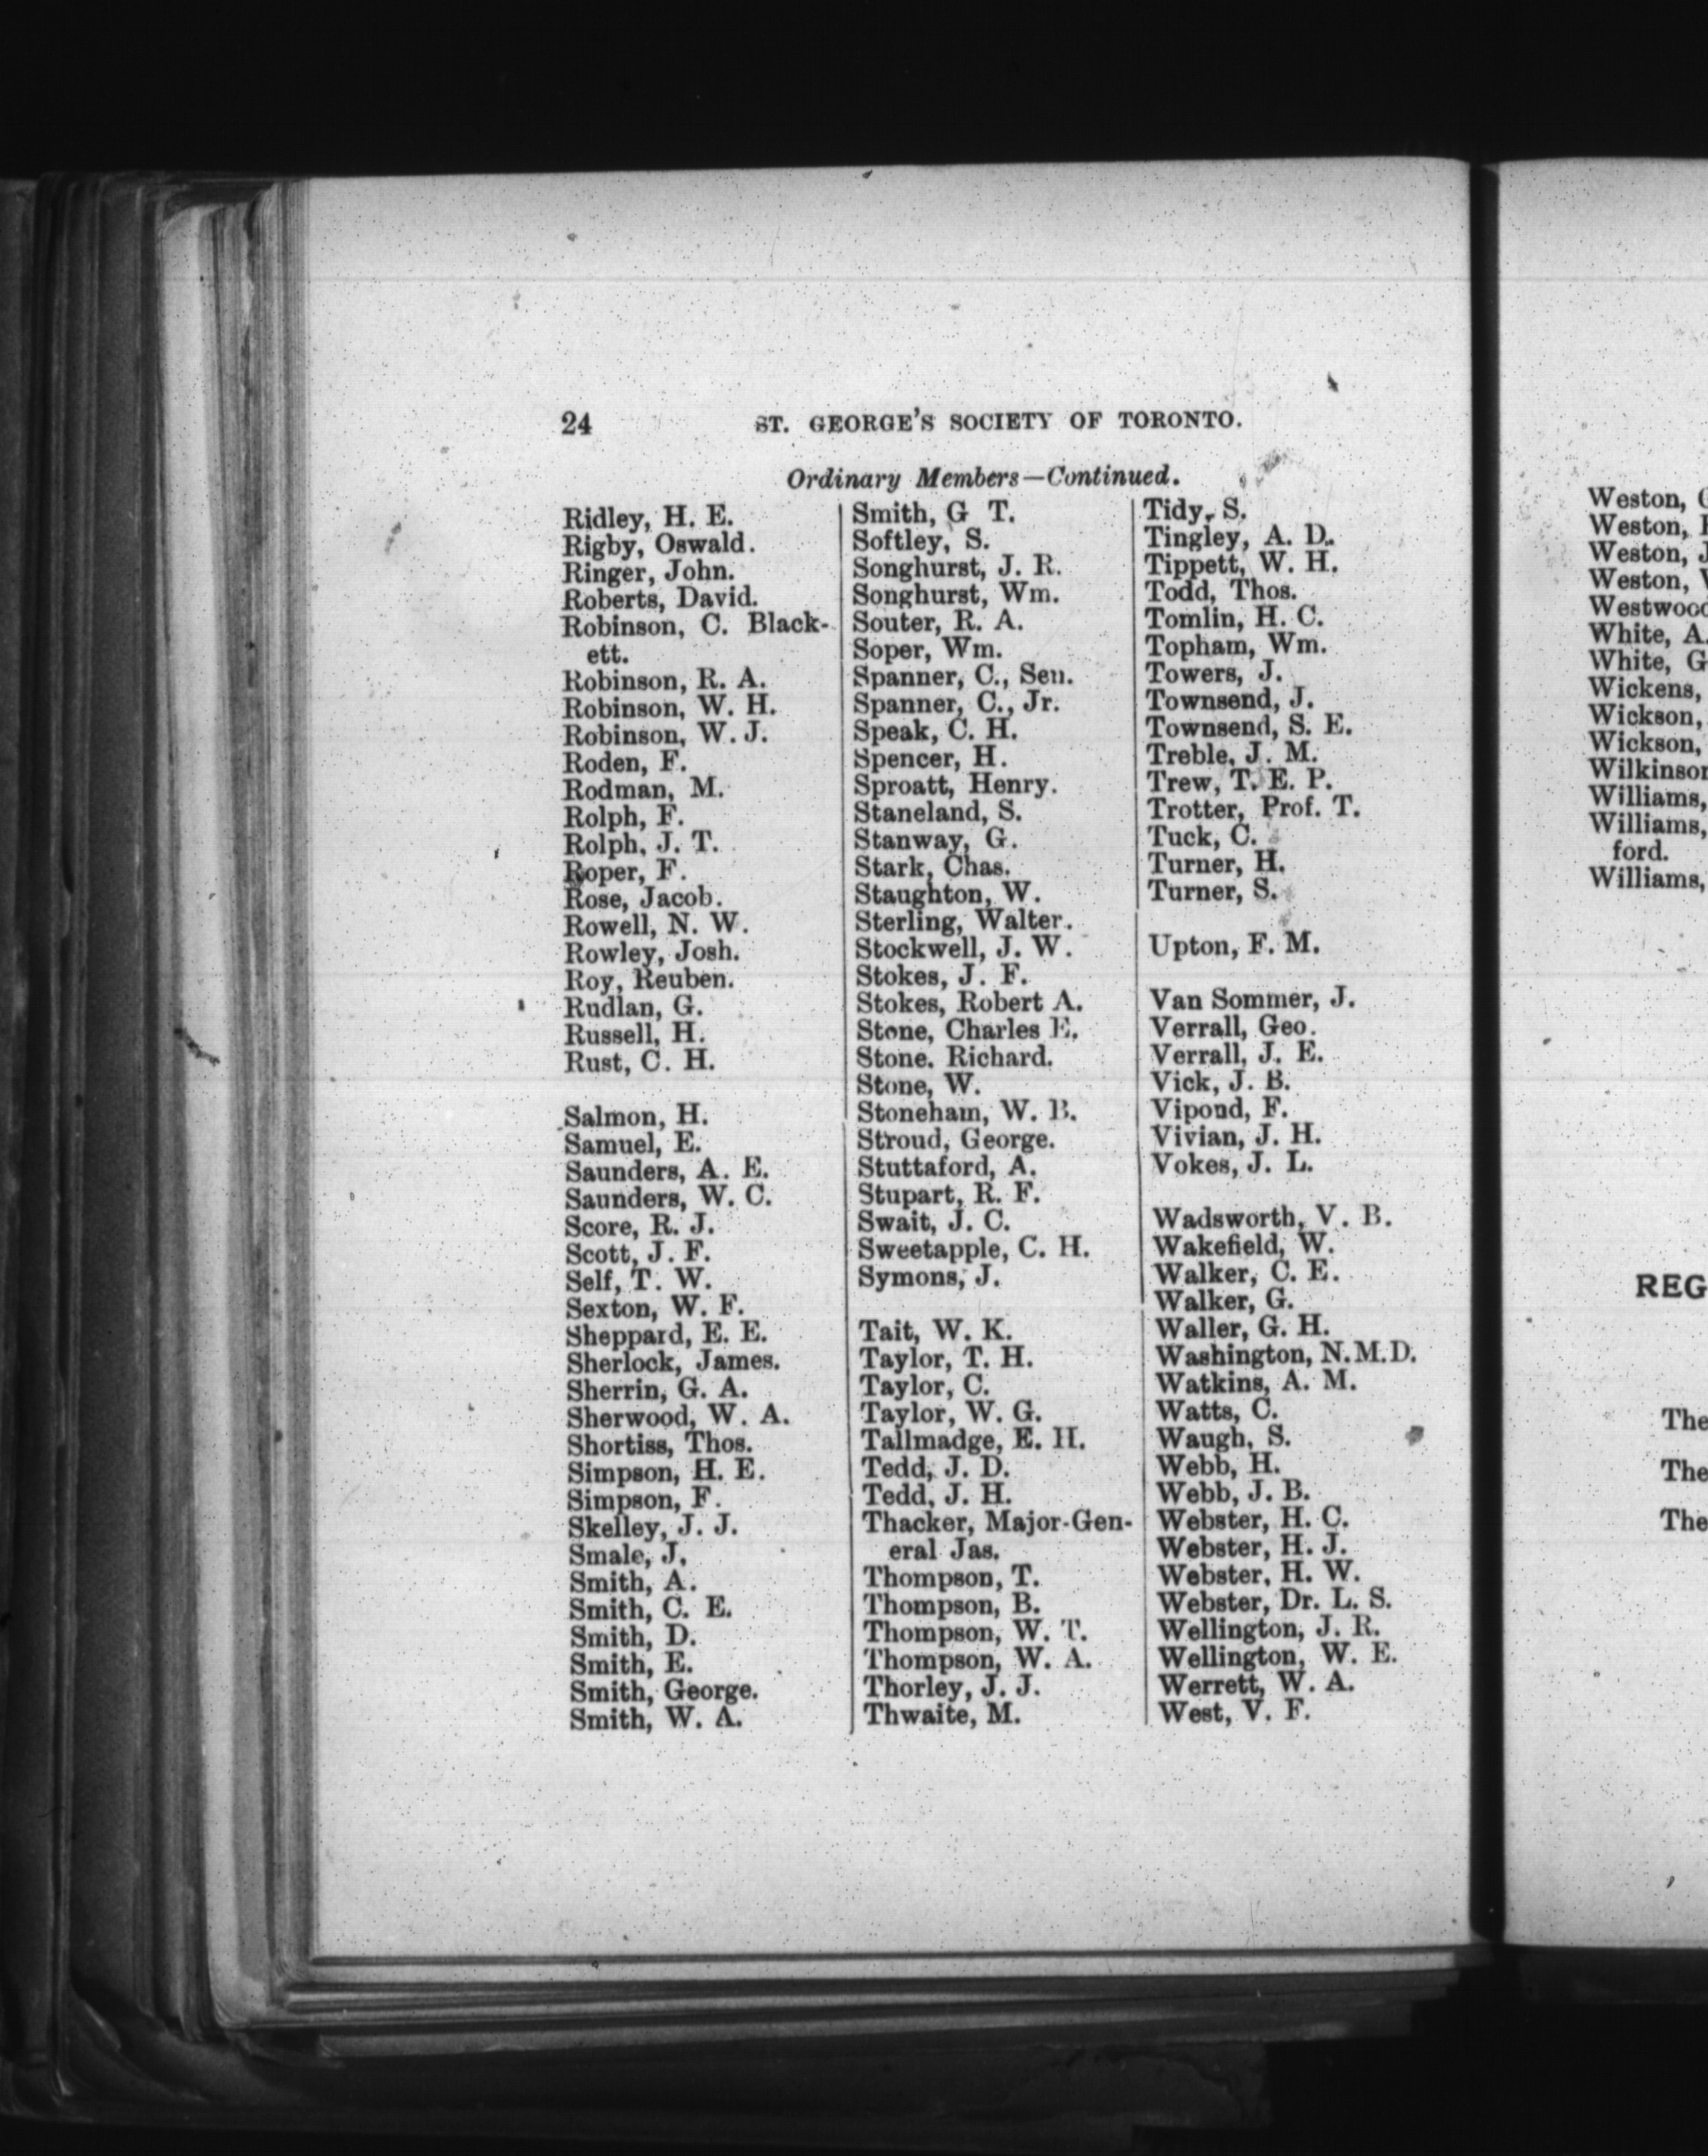 24 ST. GEORGE'S SOCIETY OF TORONTO.
Ordinary Members—Continued.
Ridley, H. E.
Rigby, Oswald.
Ringer, John.
Roberts, David.
Robinson, C. Black-
ett.
Robinson, R. A.
Robinson, W. H.
Robinson, W. J.
Roden, F.
Rodman, M.
Rolph, F.
Rolph, J. T.
Roper, F.
Rose, Jacob.
Rowell, N. W.
Rowley, Josh.
Roy, Reuben.
Rudlan, G.
Russell, H.
Rust, C. H.
Salmon, H.
Samuel, E.
Saunders, A. E.
Saunders, W. C.
Score, R. J.
Scott, J. F.
Self, T. W.
Sexton, W. F.
Sheppard, E. E.
Sherlock, James.
Sherrin, G. A.
Sherwood, W. A.
Shortiss, Thos.
Simpson, H. E.
Simpson, F.
Skelley, J. J.
Smale, J.
Smith, A.
Smith, C. E.
Smith, D.
Smith, E.
Smith, George.
Smith, W. A.
Smith, G T.
Softley, S.
Songhurst, J. R.
Songhurst, Wm.
Souter, R. A.
Soper, Wm.
Spanner, C., Sen.
Spanner, C., Jr.
Speak, C. H.
Spencer, H.
Sproatt, Henry.
Staneland, S.
Stanway, G.
Stark, Chas.
Staughton, W.
Sterling, Walter.
Stockwell, J. W.
Stokes, J. F.
Stokes, Robert A.
Stone, Charles E.
Stone. Richard.
Stone, W.
Stoneham, W. B.
Stroud, George.
Stuttaford, A.
Stupart, R. F.
Swait, J. C.
Sweetapple, C. H.
Symons, J.
Tait, W. K.
Taylor, T. H.
Taylor, C.
Taylor, W. G.
Tallmadge, E. H.
Tedd, J. D.
Tedd, J. H.
Thacker, Major-Gen-
eral Jas.
Thompson, T.
Thompson, B.
Thompson, W. T.
Thompson, W. A.
Thorley, J. J.
Thwaite, M.
Tidy, S.
Tingley, A. D.
Tippett, W. H.
Todd, Thos.
Tomlin, H. C.
Topham, Wm.
Towers, J.
Townsend, J.
Townsend, S. E.
Treble, J. M.
Trew, T. E. P.
Trotter, Prof. T.
Tuck, C.
Turner, H.
Turner, S.
Upton, F. M.
Van Sommer, J.
Verrall, Geo.
Verrall, J. E.
Vick, J. B.
Vipond, F.
Vivian, J. H.
Vokes, J. L.
Wadsworth, V. B.
Wakefield, W.
Walker, C. E.
Walker, G.
Waller, G. H.
Washington, N.M.D.
Watkins, A. M.
Watts, C.
Waugh, S.
Webb, H.
Webb, J. B.
Webster, H. C.
Webster, H. J.
Webster, H. W.
Webster, Dr. L. S.
Wellington, J. R.
Wellington, W. E.
Werrett, W. A.
West, V. F.
Weston,
Weston,
Weston,
Weston,
White, A.
White, G
Wickens,
Wickson,
Wickson,
Williams,
Williams,
ford.
Williams,
The
The
The